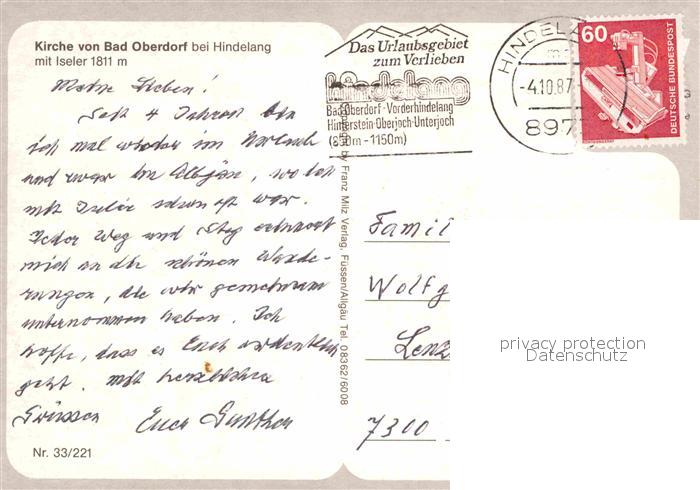 Kirche von Bad Oberdorf bei Hindelang
mit Iseler 1811 m
Meine Lieben!
Seit 4 Jahren bin
ich mal wieder im Urlaub
und zwar im Allgäu, wo ich
mit schon oft war.
Jeder Weg und Steg erinnert
mich an die schönen Wande-
rungen, die wir gemeinsam
unternommen haben. Ich
hoffe, dass es Euch ordentlich
geht. Mit herzlichen
Grüssen Euer Günther
Nr. 33/221
Das Urlaubsgebiet
zum Verlieben
Hindelang
Bad Oberdorf-Vorderhindelang
Hinterstein-Oberjoch-Unterjoch
(850m-1150m)
HINDELA
-4.10.87
897
60
DEUTSCHE BUNDESPOST
by Franz Milz Verlag, Füssen/Allgäu Tel. 08362/6008
Famil
Wolfg
Lenz
7300
privacy protection
Datenschutz